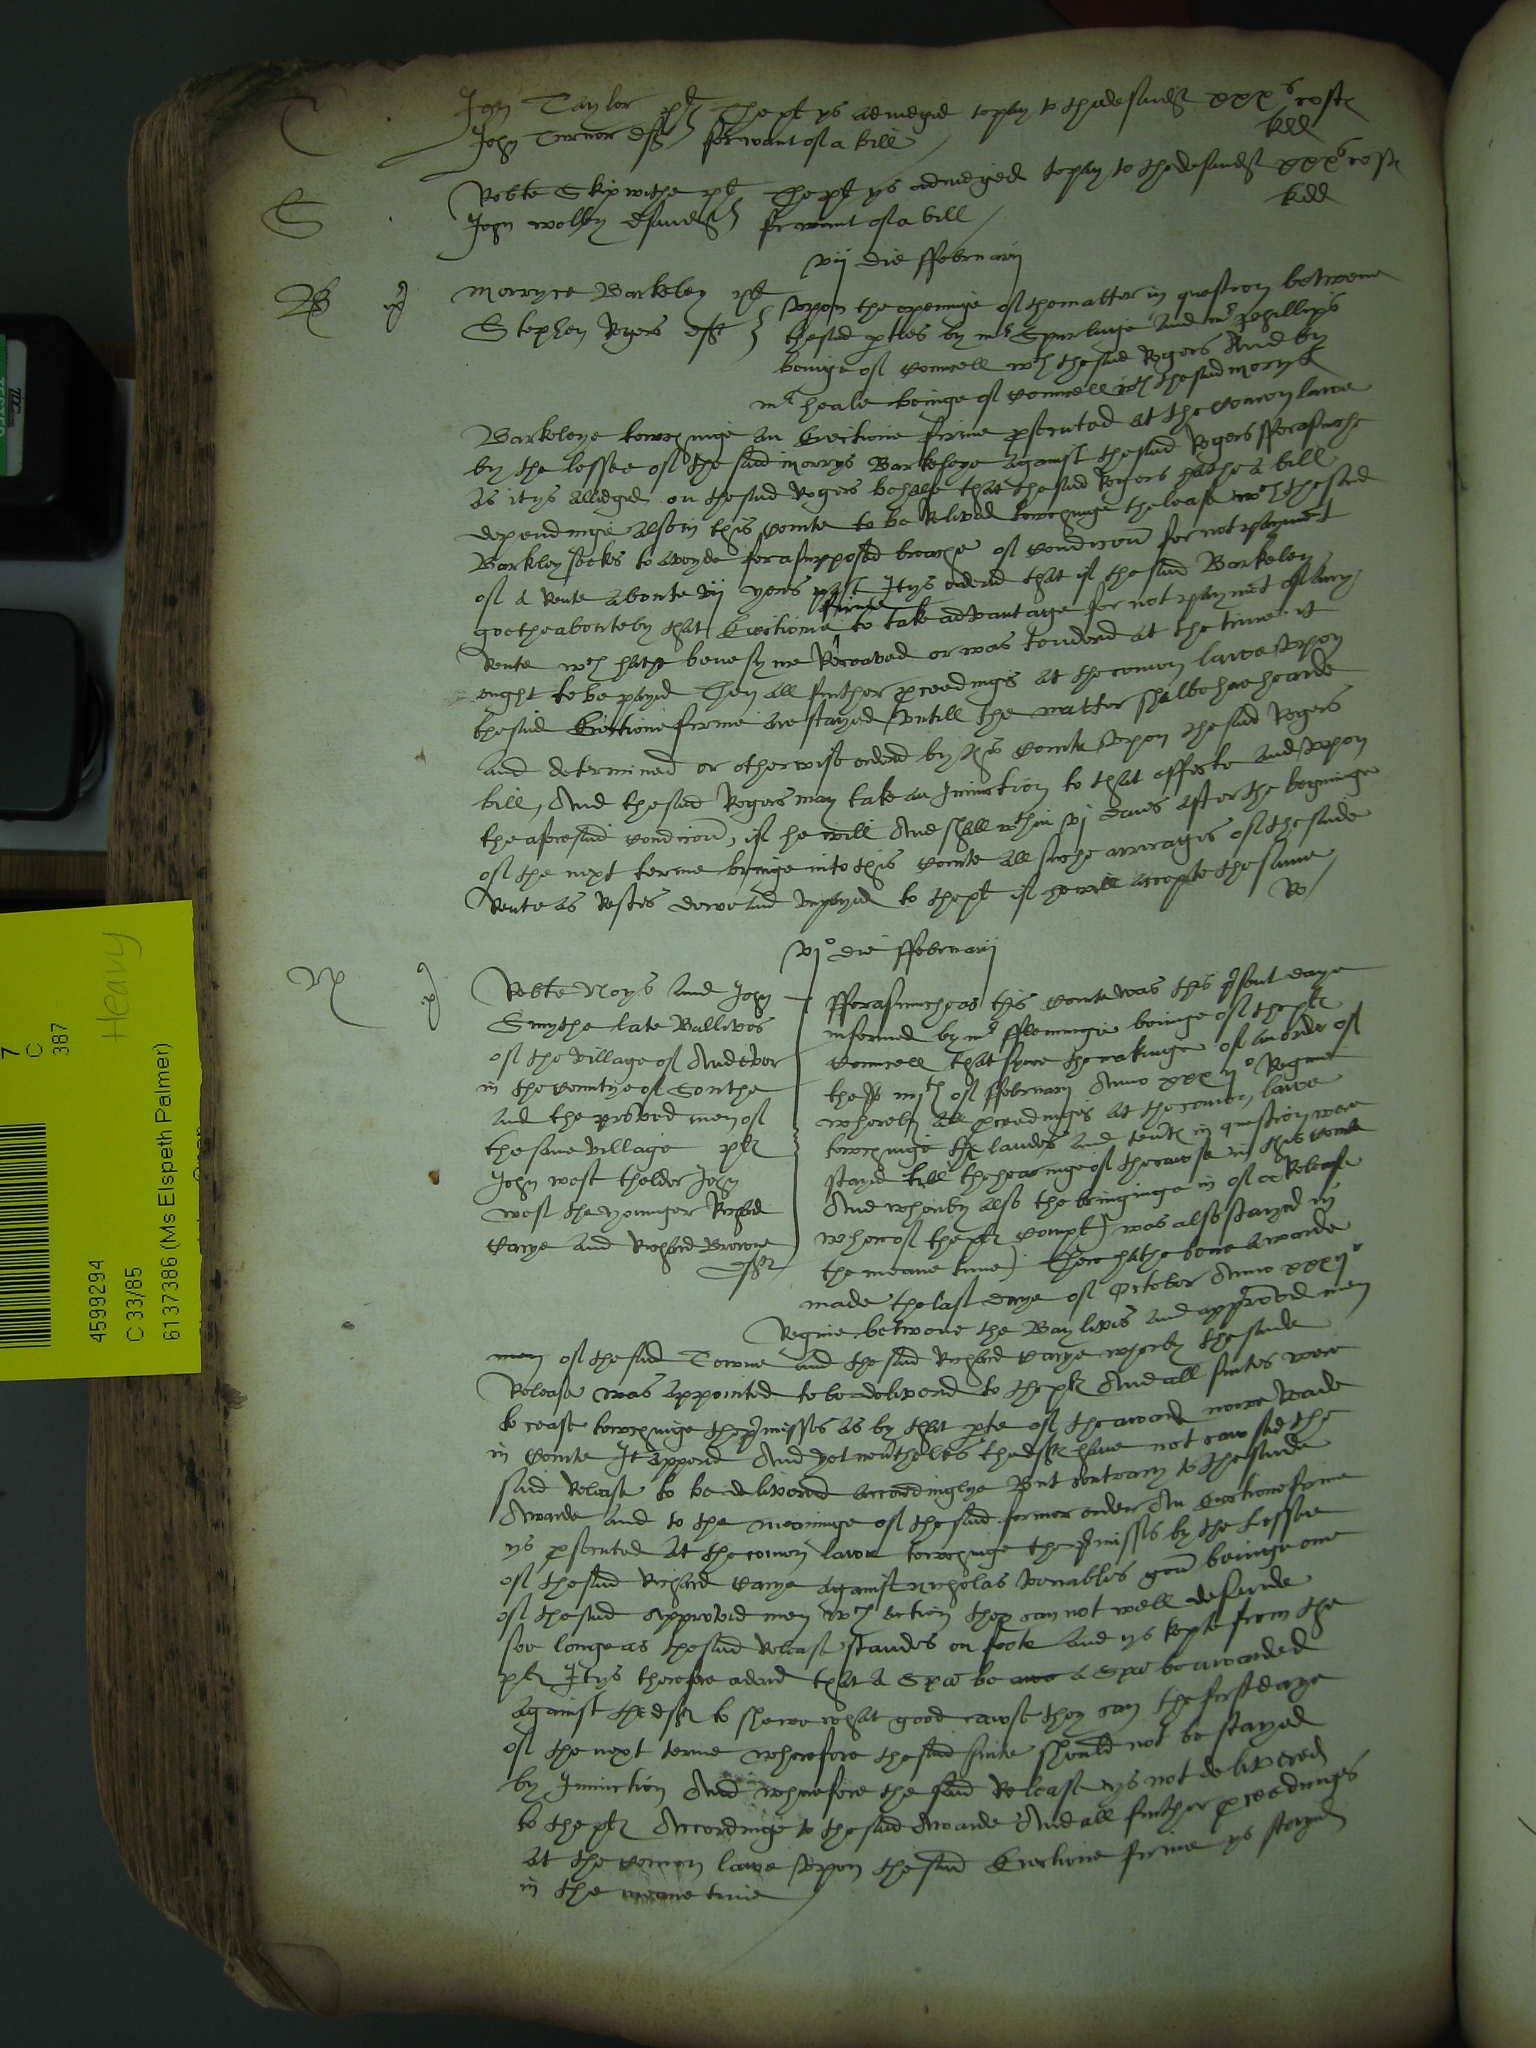 T John Taylor plt The plt ys adiudged to pay to the defendt xxxs costes
John Turnor deft for want of a bill
kdd
S Robte Skipwithe plt The plt ys adiudged to pay to the defendt xxxs costes
John wolley defendt for want of a bill
kdd
vij die ffebruarij
B Morryce Barkeley plt Vpon the openinge of the matter in question betwene
Stephen Rogers deft the said pties by mr Spurlinge and mr Phillipps
beinge of Councell wth the said Rogers And by
mr heale beinge of Councell wth the said Morrys
Barkeleye towchinge an Eiectione firme psecuted at the Comon lawe
by the lessee of the said Morrys Barkeleye against the said Rogers fforasmuche
as it ys alledged on the said Rogers behalfe that the said Rogers hathe a bill
dependinge also in this Courte to be Relived towchinge the lease wch the said
Barkley seeks to avoyde for a supposed breache of Condicon for not paymt
of a Rente aboute vij yeres past It ys ordered that if the said Barkeley
goethe aboute by that Eiectione firme to take advantage for not paymt of any
Rente wch hathe bene synce Receaved or was tendered at the time it
ought to be payed Then all further pceedings at the comon lawe vpon
the said Eiectione firme are stayed vntill the matter shalbe here hearde
and determined or otherwise ordered by this Courte vpon the said Rogers
bill, And the said Rogers may take an Iniunction to that effecte and vpon
the aforesaid Condicon, if he will And shall wthin vj daies after the begininge
of the next terme bringe into this Courte all suche arrerages of the saide
Rente as Restes dewe and vnpayed to the plt if he will accepte the same
Ro/
vjo die ffebruarij
N Robte Noys and John
Smythe late Ballives
of the Village of Andever
in the Countye of Southe
and the approved men of
the same Village plts
John west thelder John
west the younger Richard
Carye and Richard Browne
defts
fforasmuche as this Courte was this psent daye
informed by mr fflemminge beinge of the plts
Councell That synce the makinge of an order of
the iiijth of ffebruary Anno xxxijo Regine
whereby all pceedinges at the comon lawe
towchinge the landes and tents in question were
stayed till the hearinge of the cawse in this Courte
And whereby also the bringinge in of a Release
whereof the plts Compt) was also stayed in
the meane time) There hathe bene awarde
made the last daye of October Anno xxxijo
Regine betwene the Baylives and approved men
men of the said Towne and the said Richard Carye wherby the saide
Release was appointed to be delivered to the plts And all suites were
to cease towchinge the pmisses as by that pte of the award nowe Reade
in Courte It appered And yet nevtheles the defts have not cawsed the
said Release to be delivered accordinglye But contrary to the saide
Awarde and to the meaninge of the said former order An Eiectione firme
ys psecuted at the comon lawe towchinge the pmisses by the Lessee
of the said Richard Carye against Nicholas Venables gent beinge one
of the said approved men wch action they can not well defende
soe longe as the said Release standes on foote and ys kepte from the
plts It ys therefore ordered that a Spa be awa a Spa be awarded
against the defts to shewe what good cawse they can the first daye
of the next terme wherefore the said suite should not be stayed
by Iniunction And wherefore the said Release ys not delivered
to the plts Accordinge to the said Awarde And all further pceedinges
at the comon lawe vpon the said Eiectione firme ys stayed
in the meane time
7
C
387
Heavy
4599294
C 33/85
6137386 (Ms Elspeth Palmer)